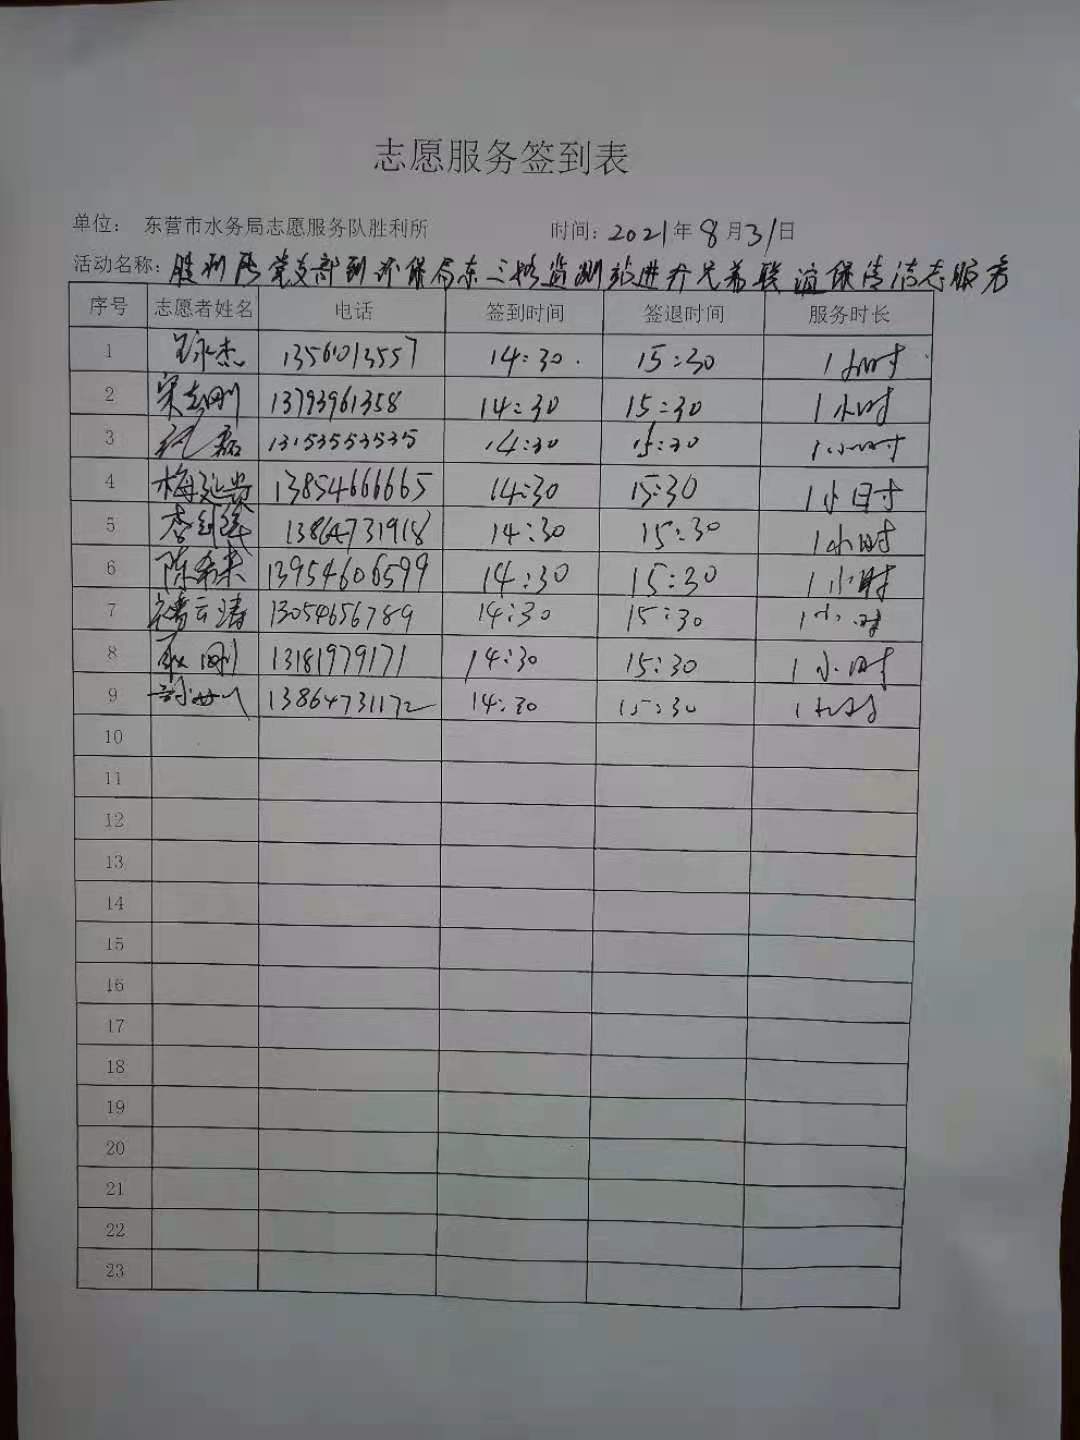 志愿服务签到表
单位： 东营市水务局志愿服务队胜利所 时间：2021年8月31日
活动名称：胜利所党支部到环保局东三路监测站进行兄弟联谊保洁清洁志服务
序号 志愿者姓名 电话 签到时间 签退时间 服务时长
1 杰 13561013557 14:30 15:30 1小时
2 宋志刚 13793961358 14:30 15:30 1小时
3 磊 13153553535 14:30 15:30 1小时
4 梅延贵 13854666665 14:30 15:30 1小时
5 李 13864731918 14:30 15:30 1小时
6 陈希来 13954606599 14:30 15:30 1小时
7 云涛 13054656789 14:30 15:30 1小时
8 刚 13181979171 14:30 15:30 1小时
9 13864731172 14:30 15:30 1小时
10
11
12
13
14
15
16
17
18
19
20
21
22
23